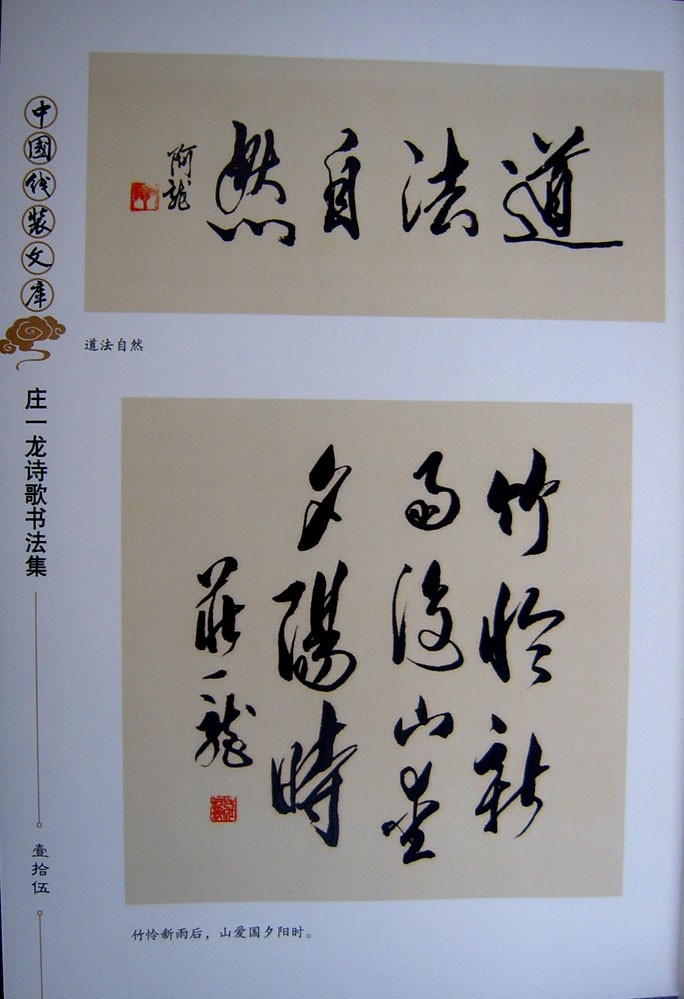 中国线装文库
庄一龙诗歌书法集
壹拾伍
道法自然
阿龍
道法自然
竹怜新
雨後山爱
夕陽時
莊一龍
竹怜新雨后，山爱国夕阳时。